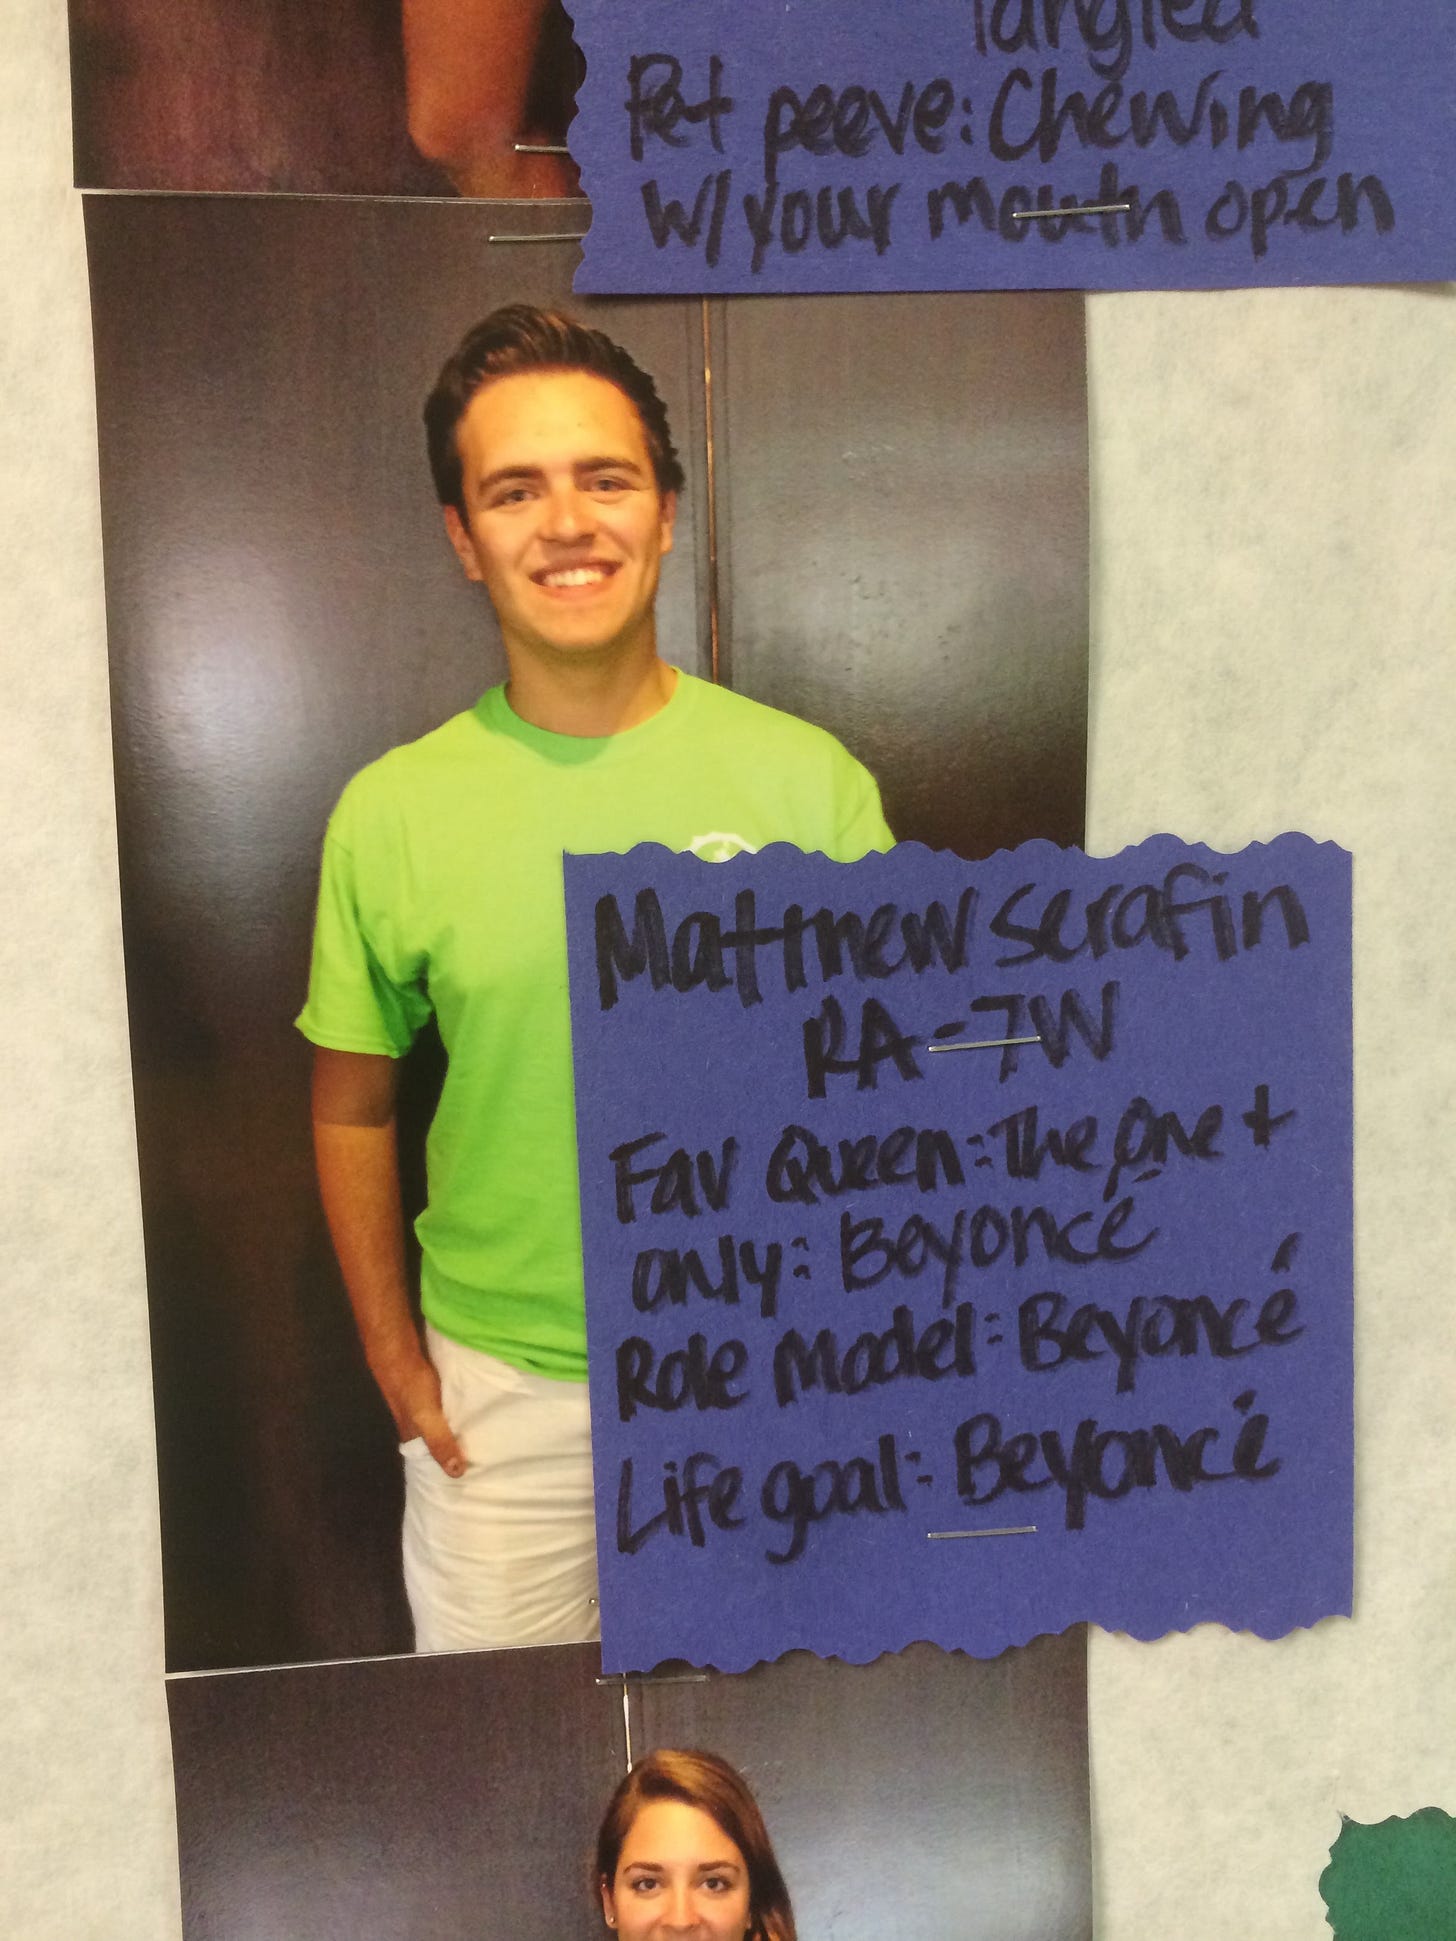 Tangled
Pet peeve: Chewing
w/ your mouth open
Matthew Serafin
RA - 7W
Fav Queen: The one +
only: Beyoncé
Role Model: Beyoncé
Life goal: Beyoncé